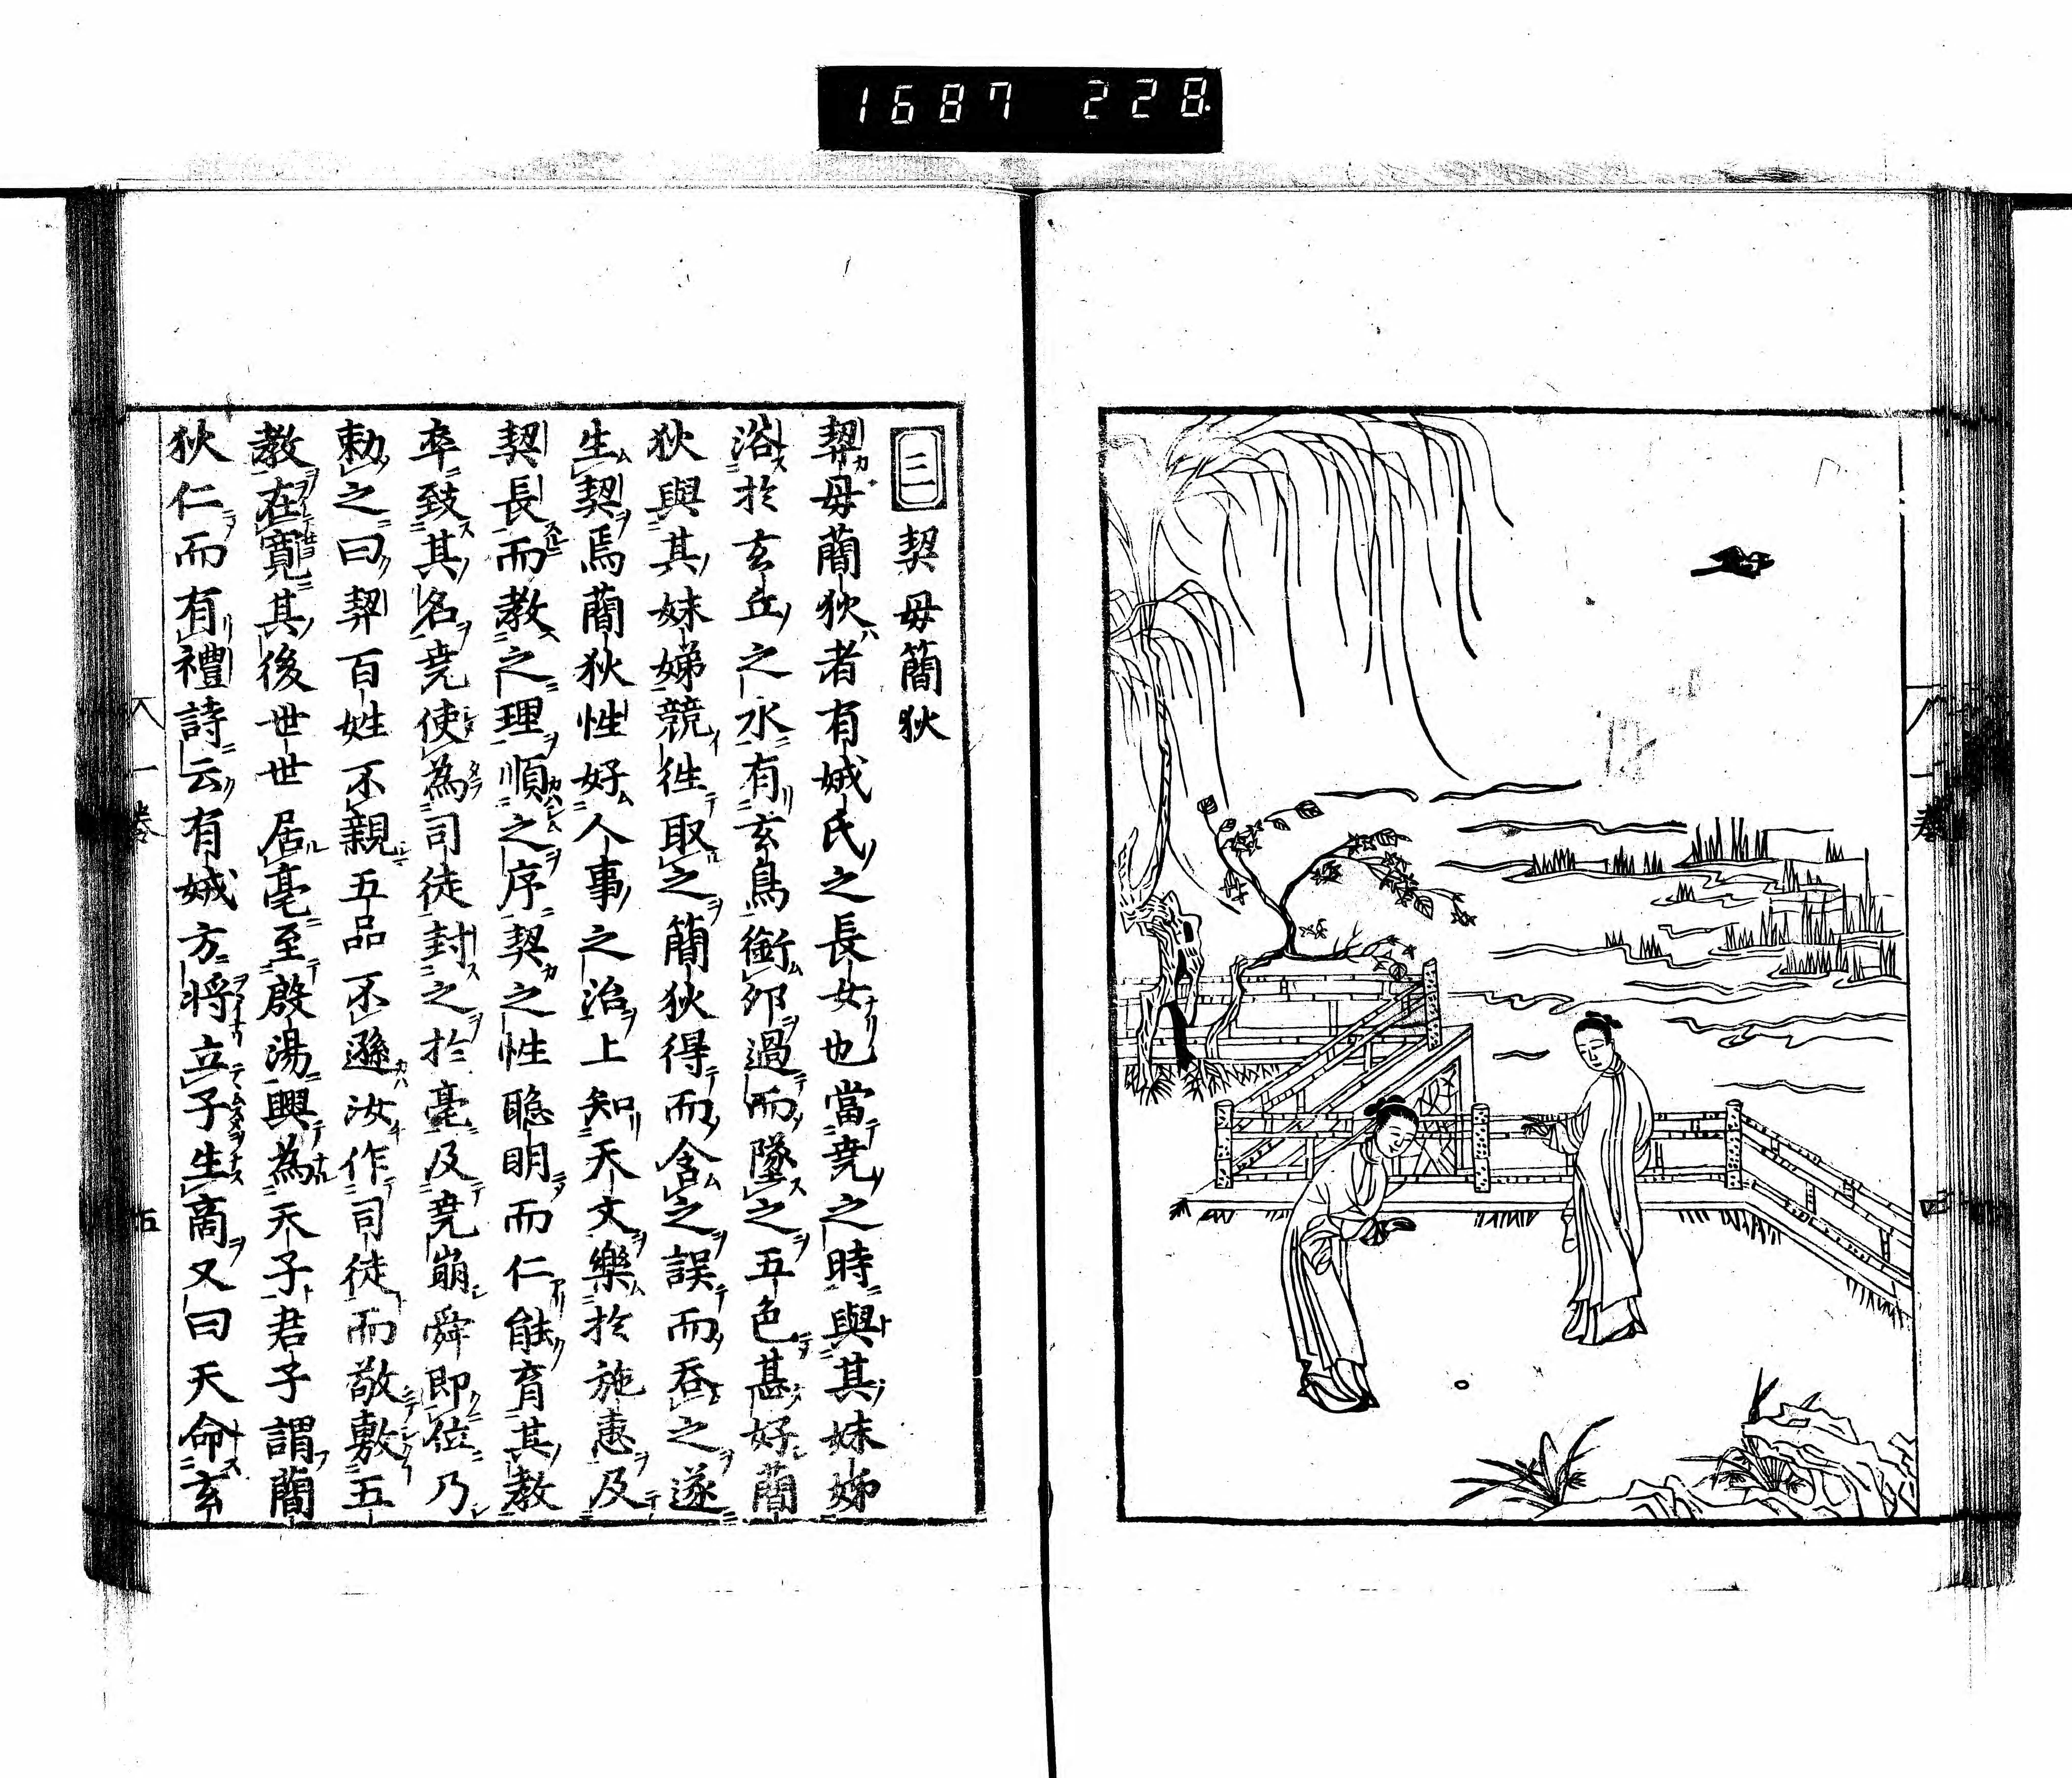 1687 228
三 契母簡狄
契母簡狄者有娀氏之長女也當堯之時與其妹娣
浴於玄丘之水有玄鳥銜卵過而墜之五色甚好簡
狄與其妹娣競徃取之簡狄得而含之誤而呑之遂
生契焉簡狄性好人事之治上知天文樂於施惠及
契長而教之理順之序契之性聦明而仁能育其教
卒致其名堯使為司徒封之於亳及堯崩舜即位乃
勅之曰契百姓不親五品不遜汝作司徒而敬敷五
教在寛其後世世居亳至殷湯興為天子君子謂簡
狄仁而有禮詩云有娀方將立子生啇又曰天命玄
一巻